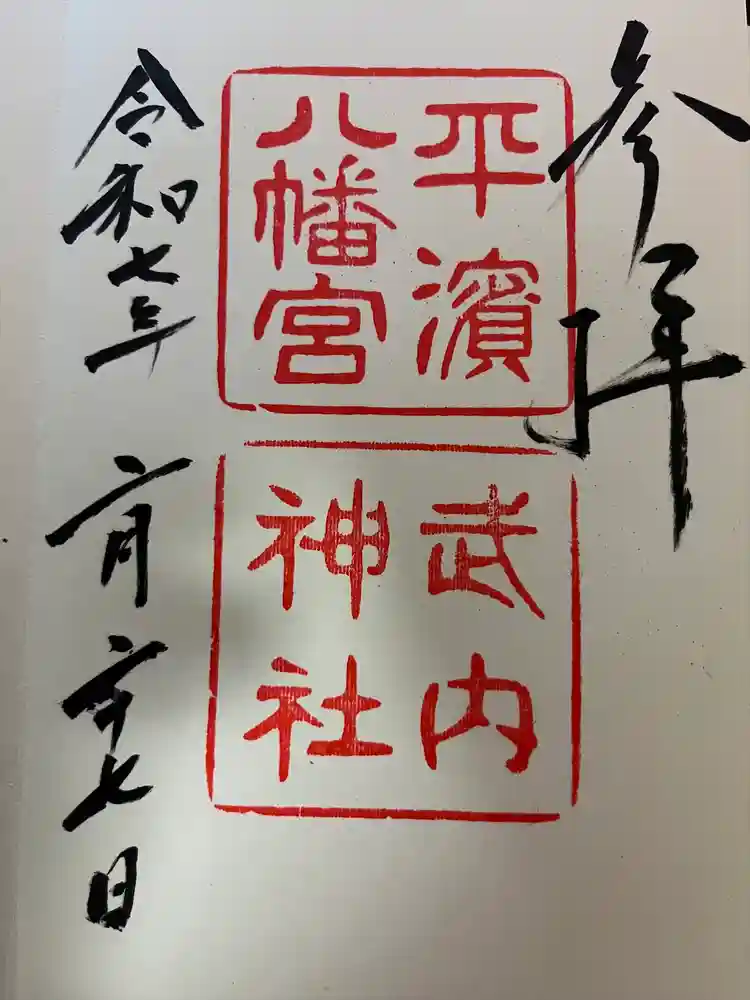 参拝
平濱
八幡宮
武内
神社
令和七年二月二十七日